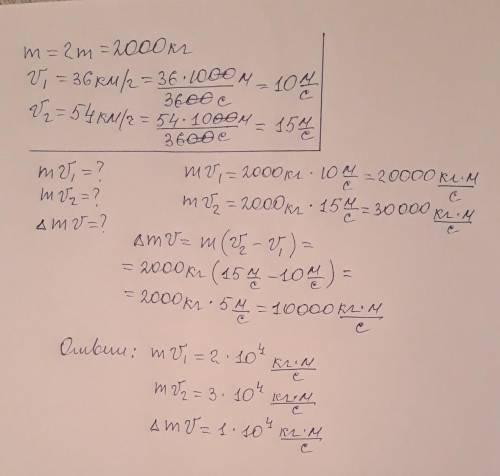 m = 2m = 2000кг
v₁ = 36км/г = 36·1000м/3600с = 10 м/с
v₂ = 54км/г = 54·1000м/3600с = 15 м/с
mv₁ = ? mv₁ = 2000кг · 10 м/с = 20000 кг·м/с
mv₂ = ? mv₂ = 2000кг · 15 м/с = 30000 кг·м/с
Δmv = ?
Δmv = m(v₂ - v₁) =
= 2000кг (15 м/с - 10 м/с) =
= 2000кг · 5 м/с = 10000 кг·м/с
Ответ: mv₁ = 2 · 10⁴ кг·м/с
mv₂ = 3 · 10⁴ кг·м/с
Δmv = 1 · 10⁴ кг·м/с